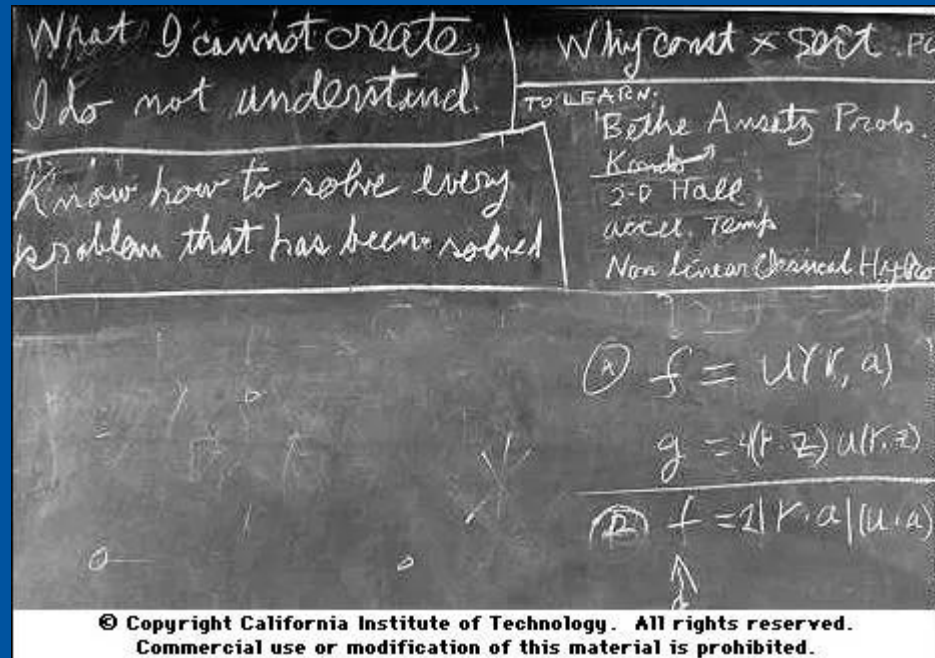 What I cannot create,
I do not understand.
Know how to solve every
problem that has been solved
Why const × sort . PO
TO LEARN:
Bethe Ansatz Probs.
Kondo
2-D Hall
accel. Temp
Non linear Classical Hydro
Ⓐ f = u(r, a)
g = 4(r·z) u(r, z)
f = 2|r·a|(u·a)
© Copyright California Institute of Technology. All rights reserved.
Commercial use or modification of this material is prohibited.